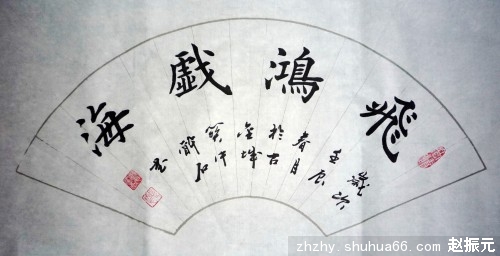 飛鴻戲海
歲次
壬辰
春月
於古
金城
笑仟
醉石
zhzhy.shuhua66.com 赵振元